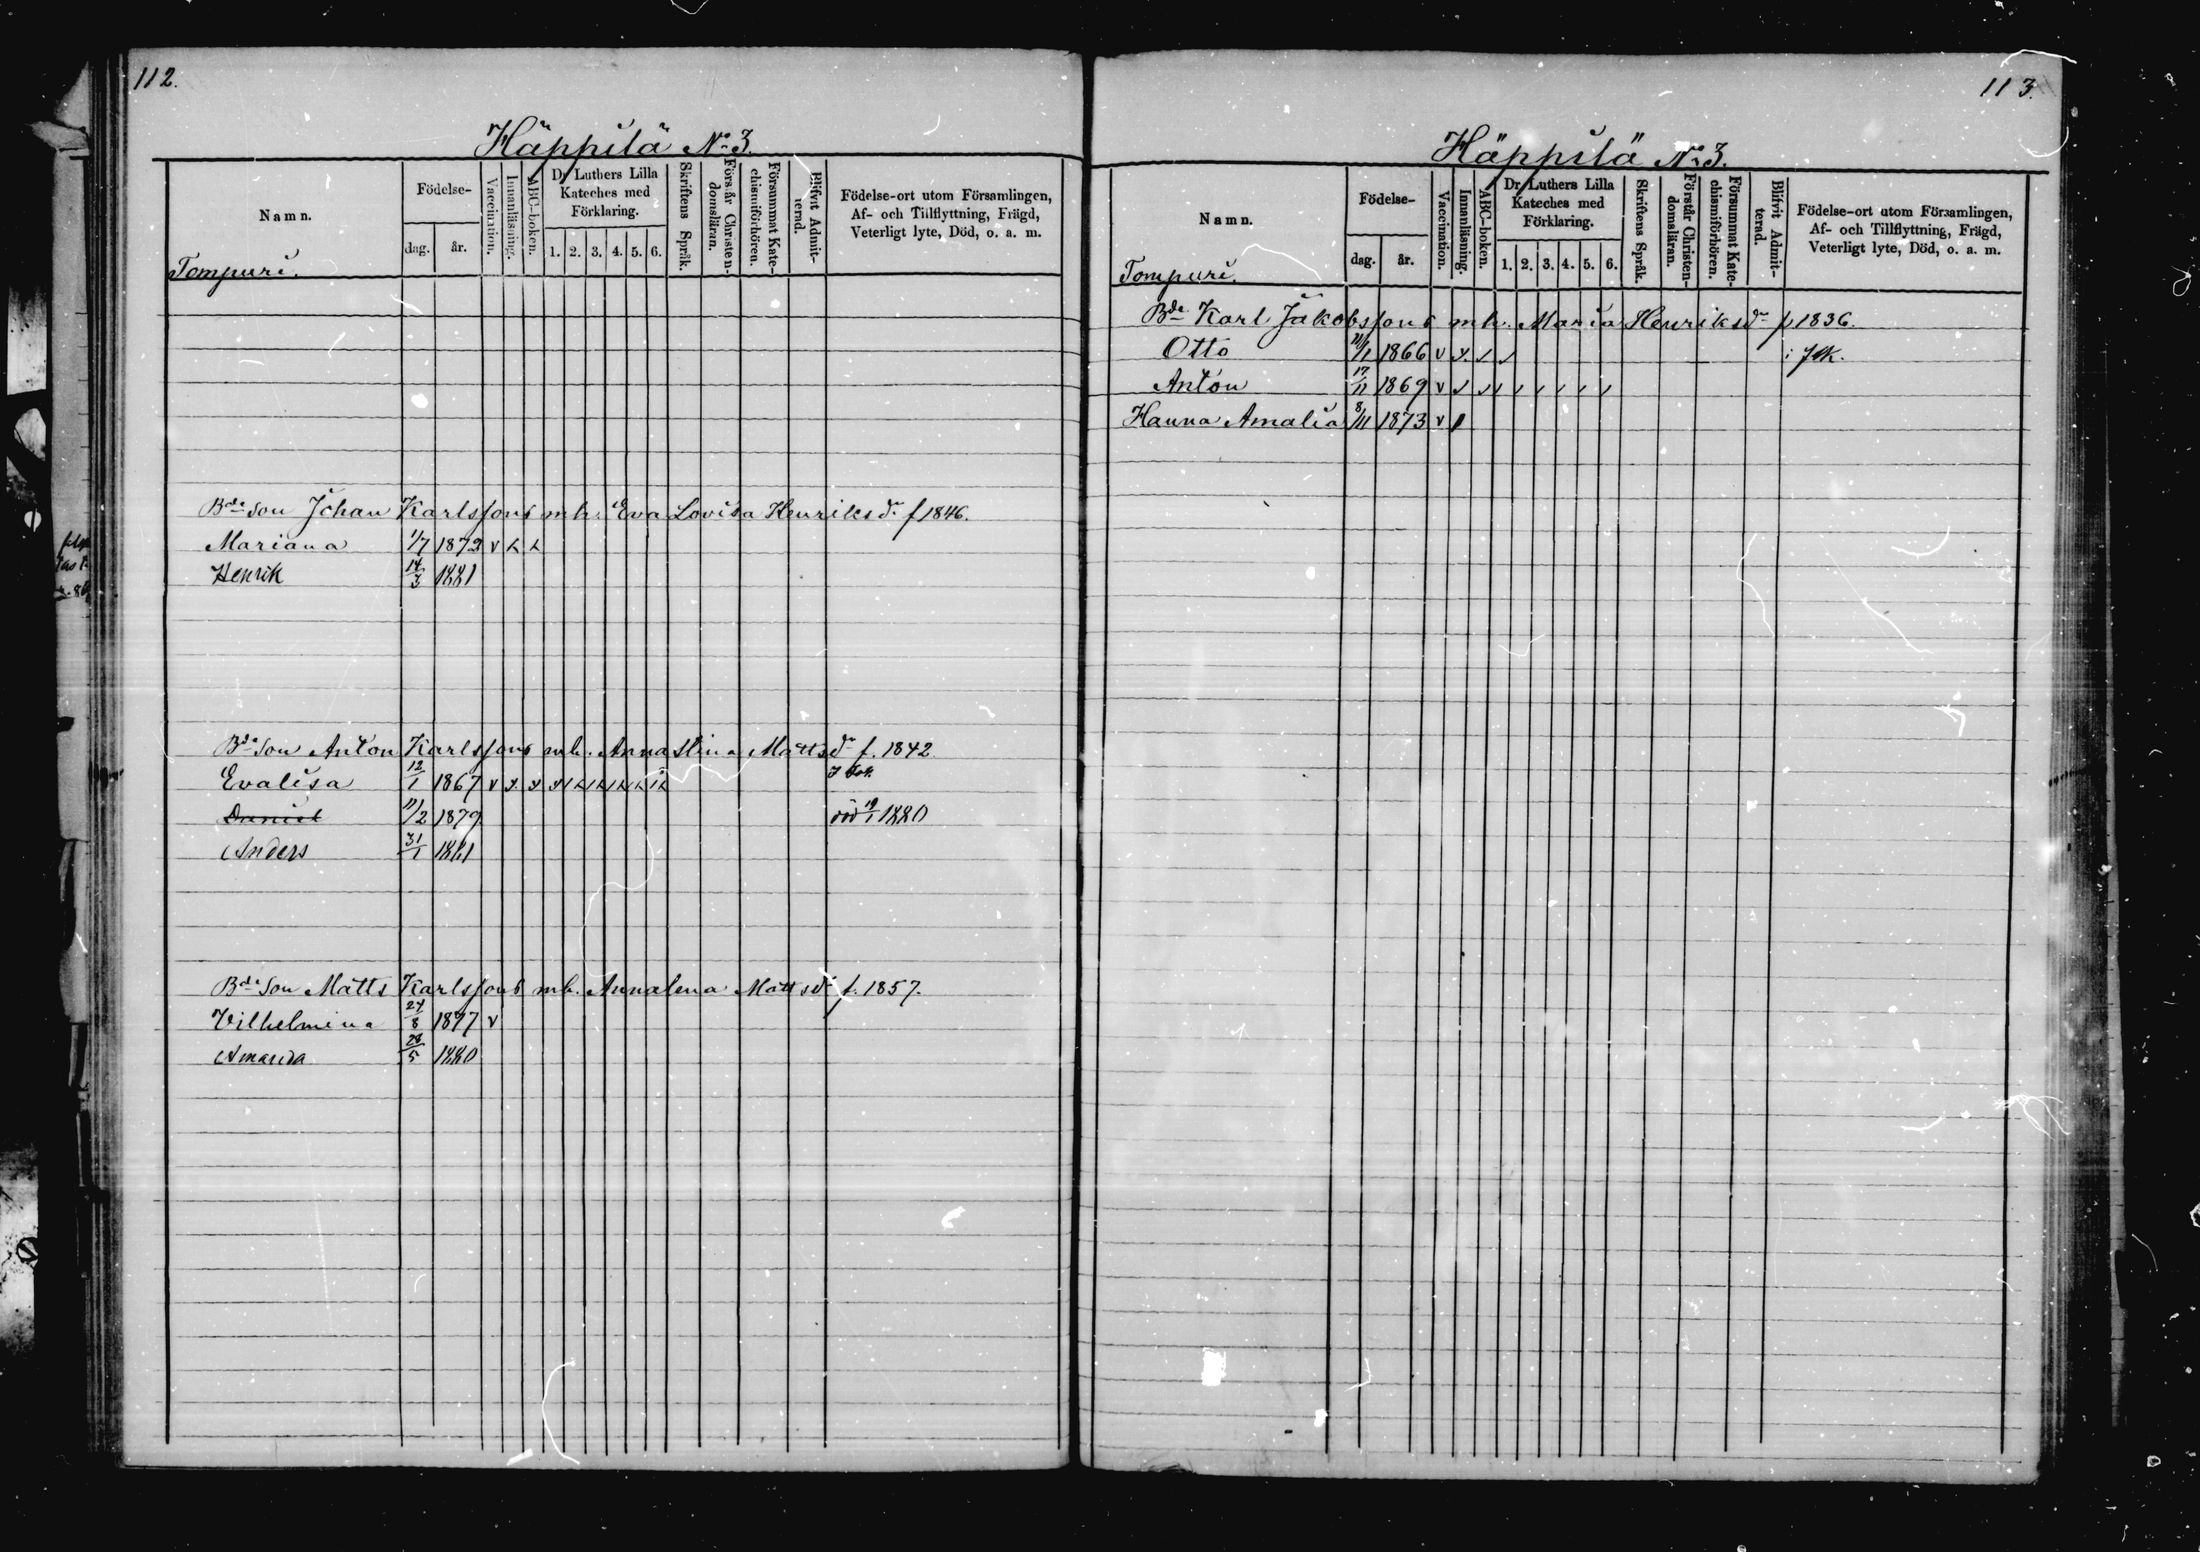 112.
Häppilä No 3.
Namn.
Födelse-
dag.
år.
Vaccination.
Innanläsning.
ABC-boken.
Dr Luthers Lilla Kateches med Förklaring.
1. 2. 3. 4. 5. 6.
Skriftens Språk.
Förstår Christendomsläran.
Försummat Katechismiförhören.
Blifvit Admitterad.
Födelse-ort utom Församlingen,
Af- och Tillflyttning, Frägd,
Veterligt lyte, Död, o. a. m.
Tompuri.
Bde son Johan Karlssons mh. Eva Lovisa Henriksdr f 1846.
Mariana 1/7 1872 v
Henrik 14/3 1881
Bde son Anton Karlssons mh. Anna Stina Mattsdr f. 1842
Evalisa 12/1 1867 v
Daniel 11/2 1879 död 19/1 1880
Anders 31/1 1881
Bde son Matts Karlssons mh. Annalena Mattsdr f. 1857.
Vilhelmina 24/8 1877 v
Amanda 28/5 1880
113.
Häppilä No 3.
Namn.
Födelse-
dag.
år.
Vaccination.
Innanläsning.
ABC-boken.
Dr Luthers Lilla Kateches med Förklaring.
1. 2. 3. 4. 5. 6.
Skriftens Språk.
Förstår Christendomsläran.
Försummat Katechismiförhören.
Blifvit Admitterad.
Födelse-ort utom Församlingen,
Af- och Tillflyttning, Frägd,
Veterligt lyte, Död, o. a. m.
Tompuri.
Bde Karl Jakobssons mh. Maria Henriksdr f 1836.
Otto 11/1 1866 v
Anton 17/11 1869 v
Hanna Amalia 8/11 1873 v